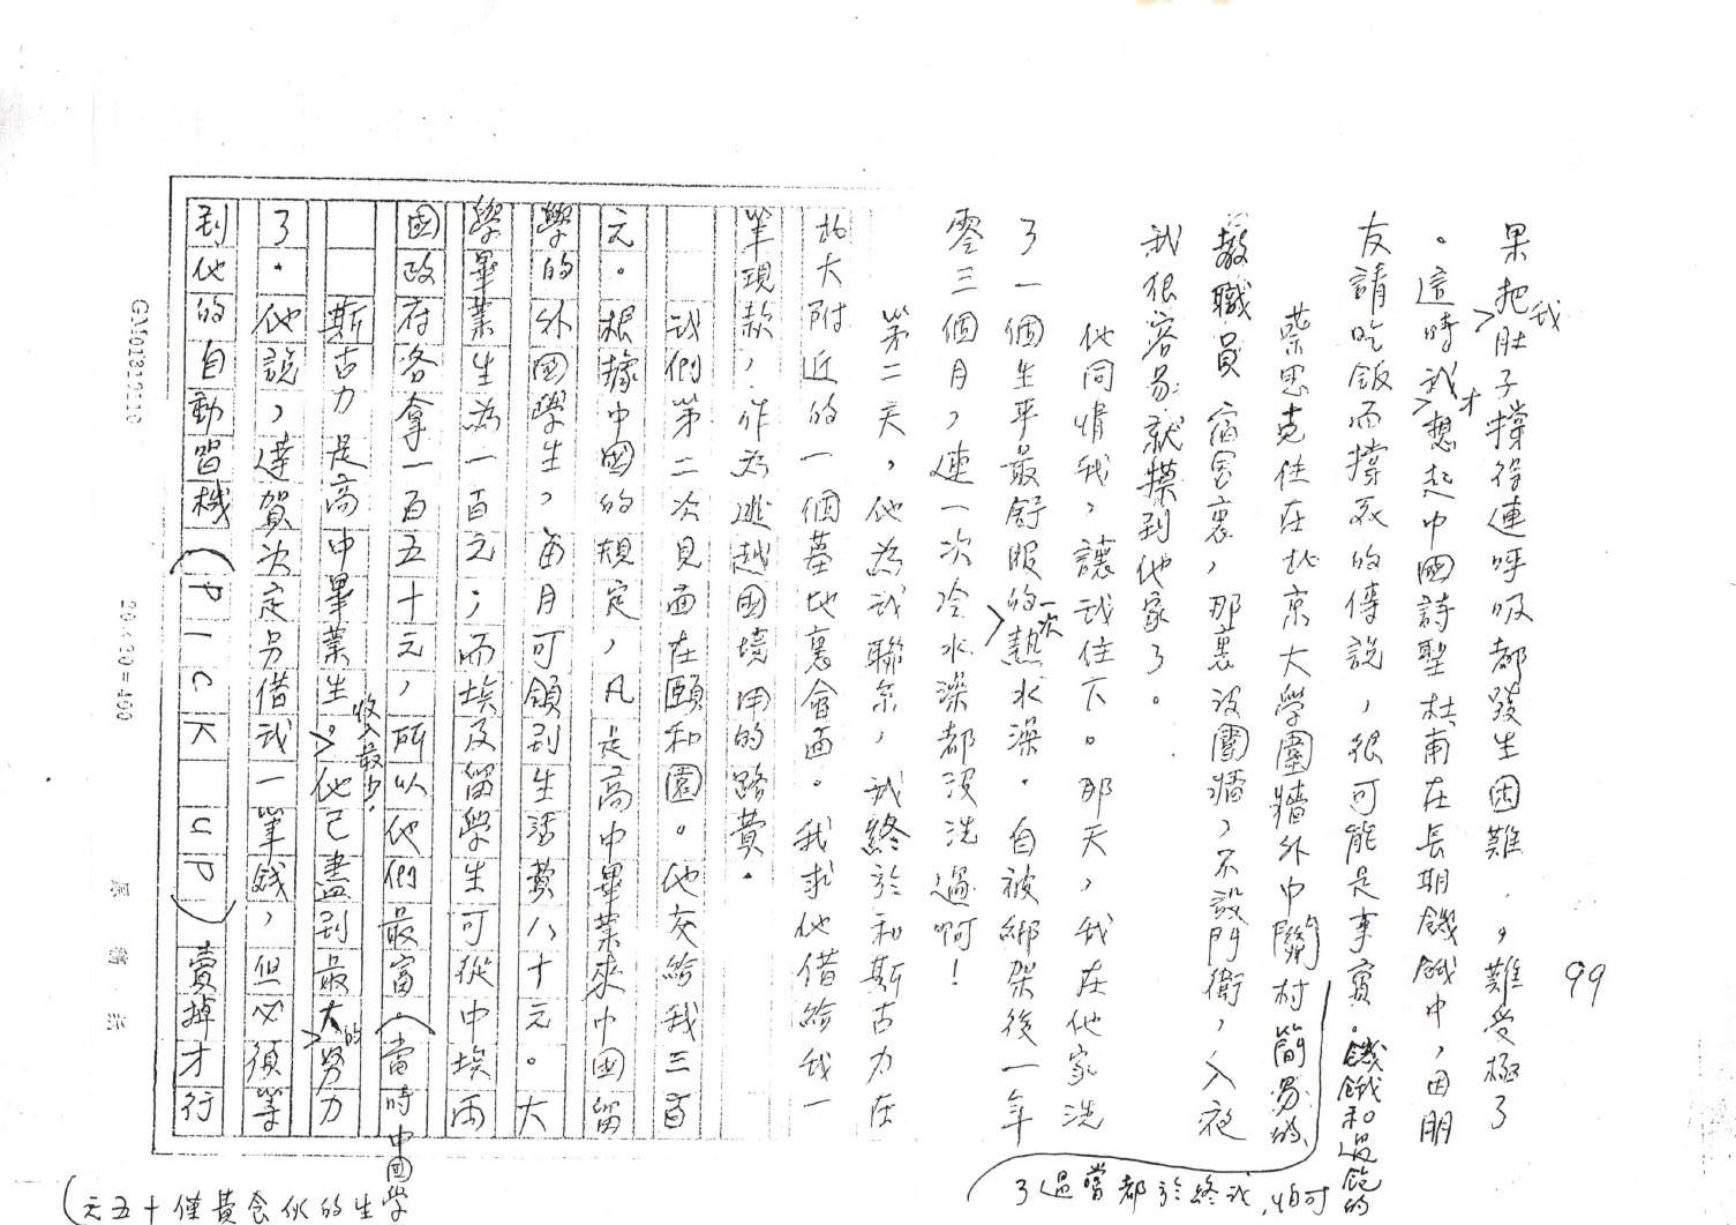 99
果把我肚子撐得連呼吸都發生困難,難受極了
。這時我才想起中國詩聖杜甫在長期饑餓中,因朋
友請吃飯而撐死的傳說,很可能是事實。饑餓和過飽的
可怕,我終於都嘗過了
蔡思克住在北京大學圍牆外中關村簡易的
教職員宿舍裏,那裏沒圍牆,不設門衛,入夜
我很容易就摸到他家了。
他同情我,讓我住下。那天,我在他家洗
了一個生平最舒服的一次熱水澡。自被綁架後一年
零三個月,連一次冷水澡都沒洗過啊!
第二天,他為我聯系,我終於和斯古力在
北大附近的一個墓地裏會面。我求他借給我一
筆現款,作為逃越國境用的路費。
我們第二次見面在頤和園。他交給我三百
元。根據中國的規定,凡是高中畢業來中國留
學的外國學生,每月可領到生活費八十元。大
學畢業生為一百元,而埃及留學生可從中埃兩
國政府各拿一百五十元,所以他們最富。(當時中國學
生的伙食費僅十五元)
斯古力是高中畢業生。收入最少。他已盡到最大的努力
了。他說,達賀次定另借我一筆錢,但必須等
到他的自動留機(PICK UP)賣掉才行
GAM01310110
20×20=400